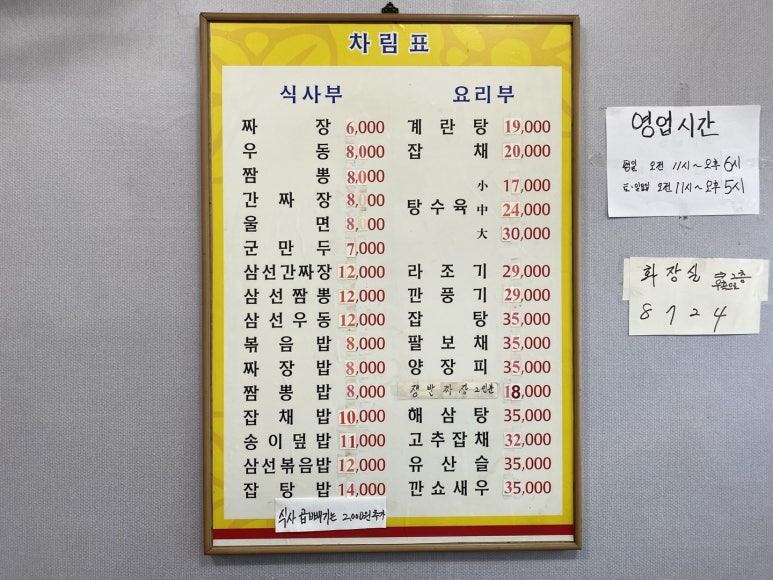 차림표
식사부
짜장 6,000
우동 8,000
짬뽕 8,000
간짜장 8,000
울면 8,000
군만두 7,000
삼선간짜장 12,000
삼선짬뽕 12,000
삼선우동 12,000
볶음밥 8,000
짜장밥 8,000
짬뽕밥 8,000
잡채밥 10,000
송이덮밥 11,000
삼선볶음밥 12,000
잡탕밥 14,000
식사 곱빼기는 2,000원 추가
요리부
계란탕 19,000
잡채 20,000
小 17,000
탕수육 中 24,000
大 30,000
라조기 29,000
깐풍기 29,000
잡탕 35,000
팔보채 35,000
양장피 35,000
쟁반짜장 2인분 18,000
해삼탕 35,000
고추잡채 32,000
유산슬 35,000
깐쇼새우 35,000
영업시간
평일 오전 11시~오후 6시
토·일요일 오전 11시~오후 5시
화장실 ⇨ 2층
우측으로
8 7 2 4